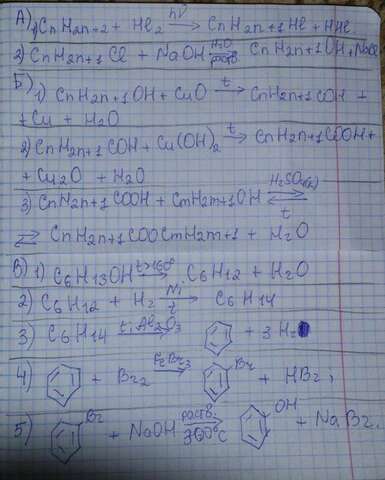 А) 1) CnH2n+2 + Hl2 hν→ CnH2n+1Hl + HHl
2) CnH2n+1Cl + NaOH H2O раств. CnH2n+1OH + NaCl
Б) 1) CnH2n+1OH + CuO t→ CnH2n+1COH +
+ Cu + H2O
2) CnH2n+1COH + Cu(OH)2 t→ CnH2n+1COOH +
+ Cu2O + H2O
3) CnH2n+1COOH + CmH2m+1OH H2SO4(к) ⇄ t
⇄ CnH2n+1COOCmH2m+1 + H2O
В) 1) C6H13OH t>160° → C6H12 + H2O
2) C6H12 + H2 Ni→ t C6H14
3) C6H14 t; Al2O3 → + 3H2
4) + Br2 FeBr3 → Br + HBr,
5) Br + NaOH раств. → 300°C OH + NaBr.